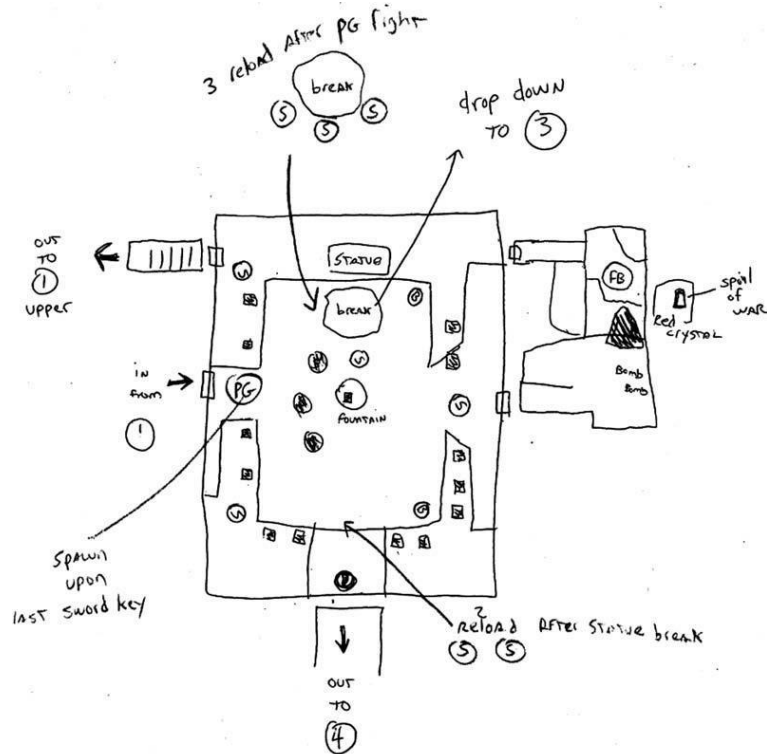 3 reload AFTER PG Fight
break
S S S
drop down
TO 3
OUT
TO
1
upper
STATUE
S
break
G
FB
spoil
of
WAR
Red
CRYSTAL
S
in
from
1
PG
FOUNTAIN
S
Bomb
Bomb
S
G
SPAWN
upon
LAST SWORD KEY
2
RELOAD AFTER STATUE break
S S
OUT
TO
4